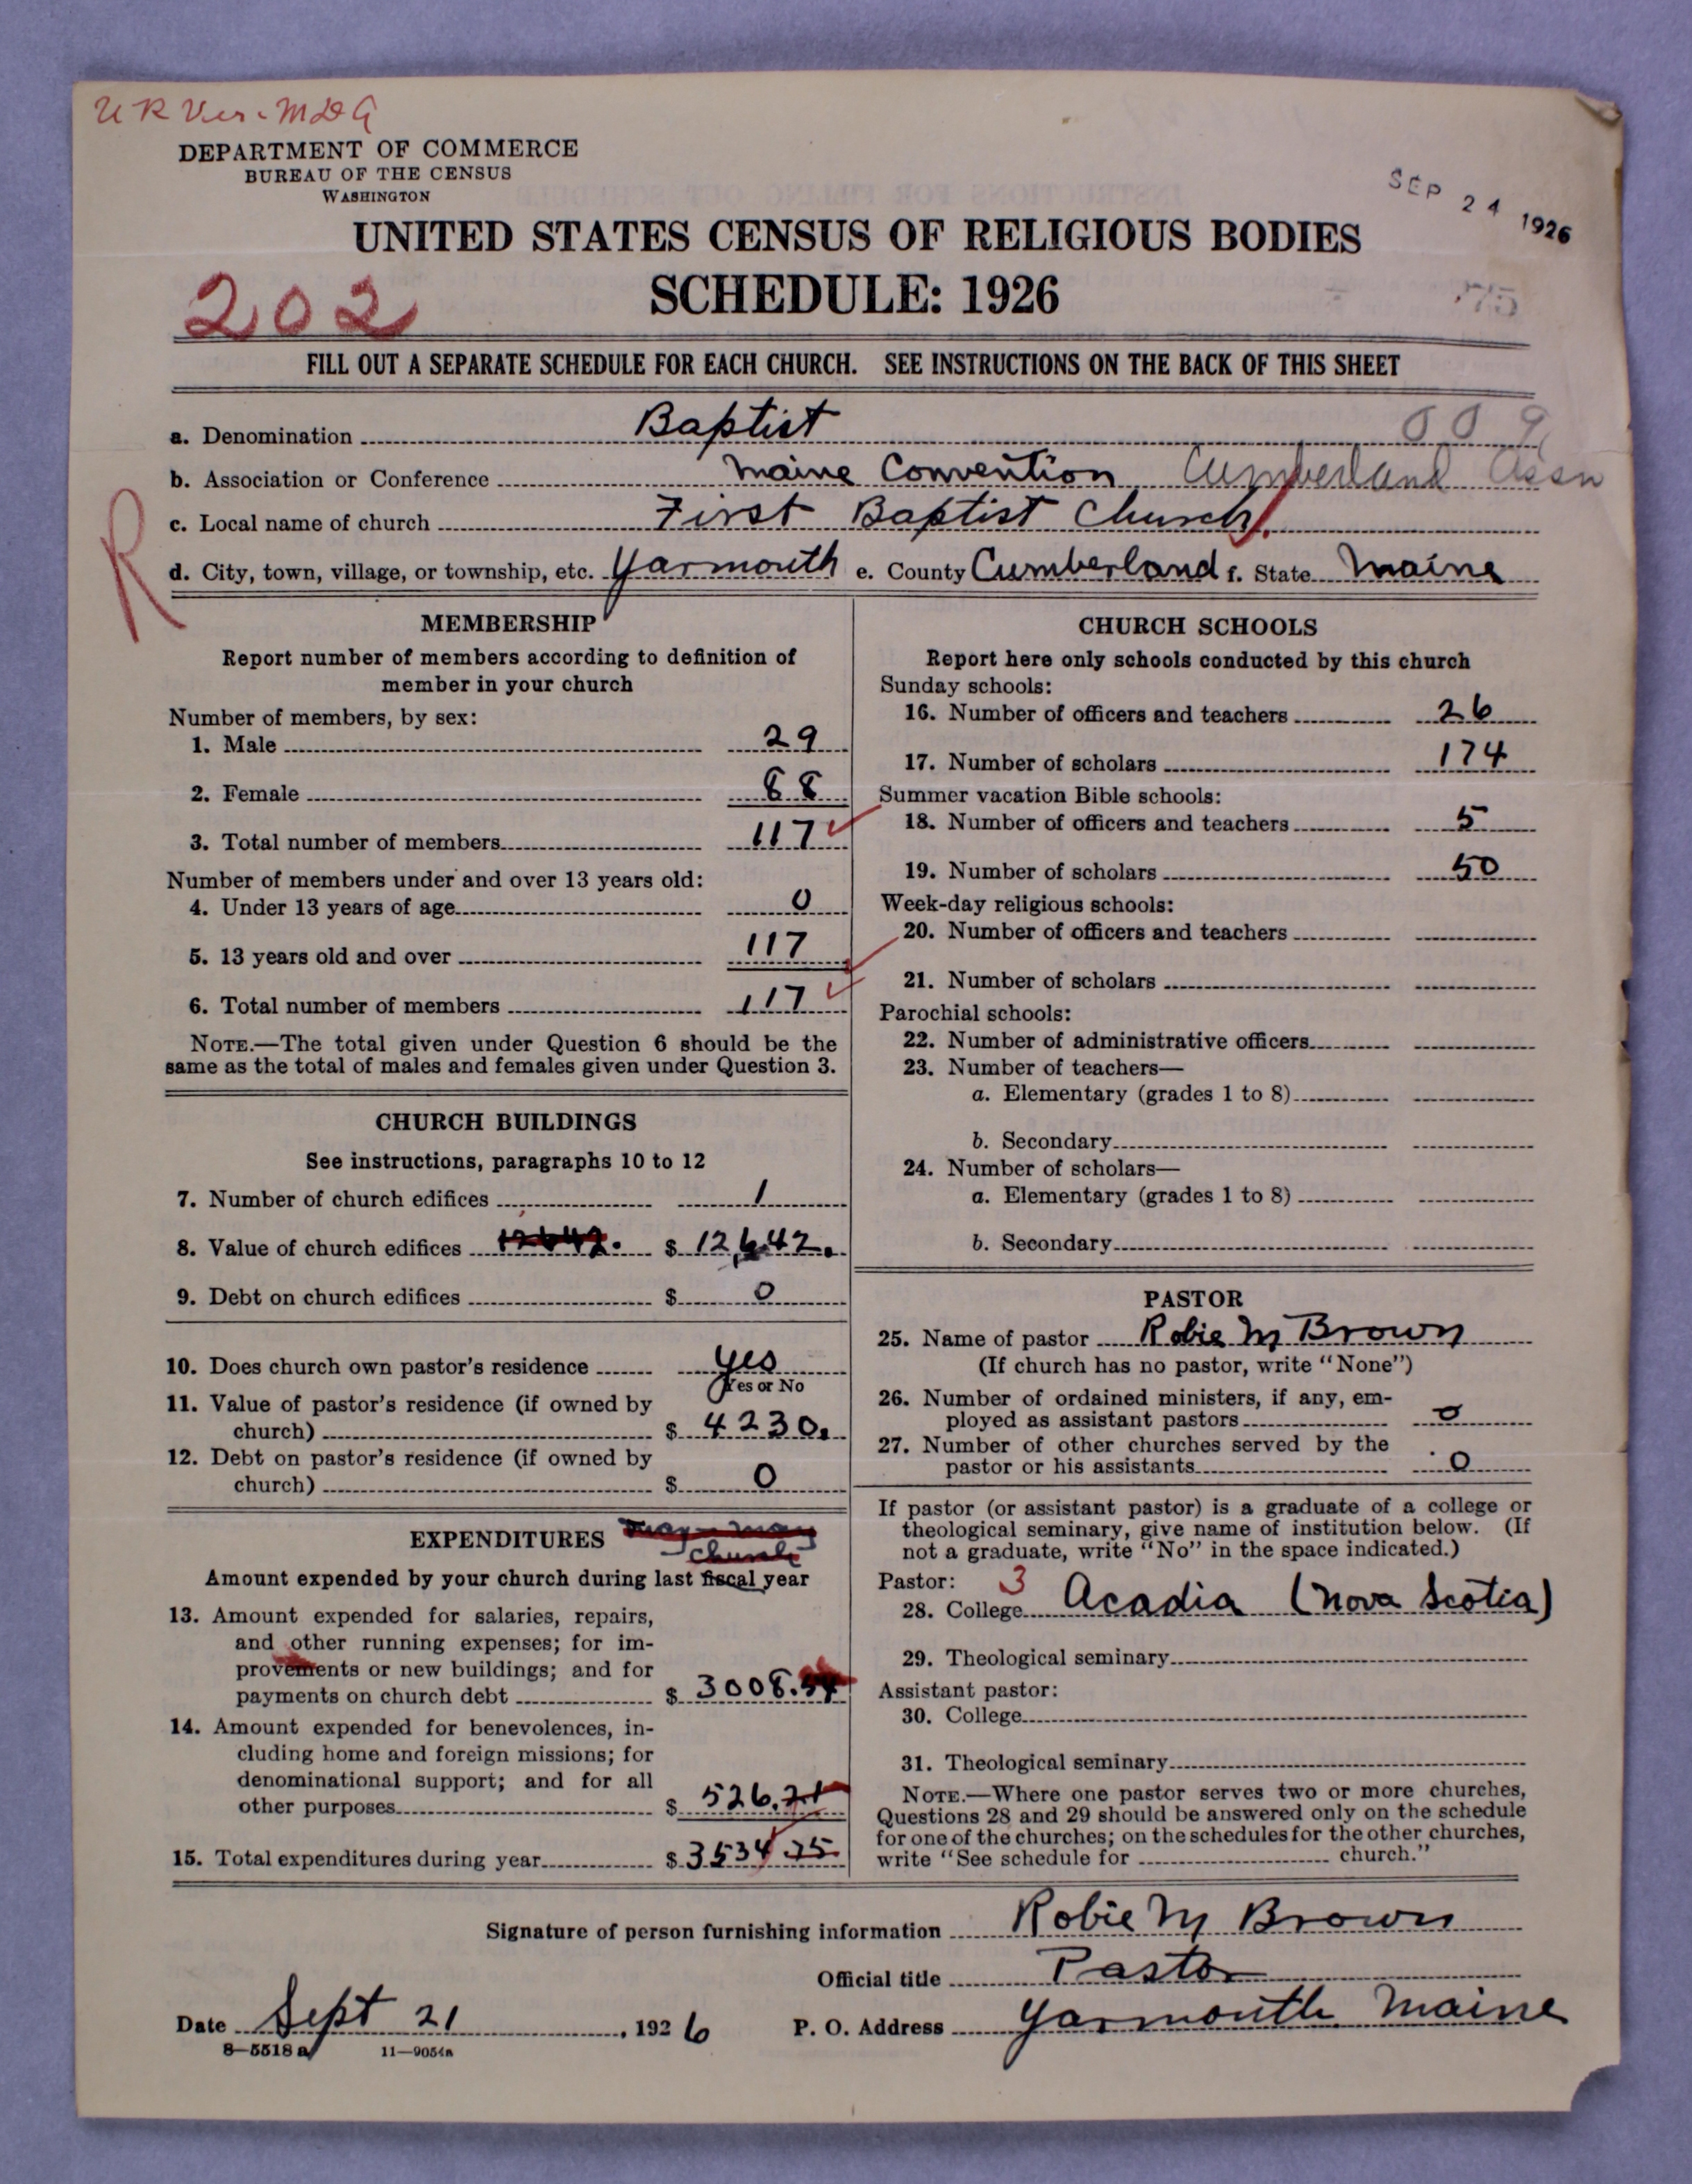 DEPARTMENT OF COMMERCE
BUREAU OF THE CENSUS
WASHINGTON
SEP 24 1926
UNITED STATES CENSUS OF RELIGIOUS BODIES
SCHEDULE: 1926
202
FILL OUT A SEPARATE SCHEDULE FOR EACH CHURCH. SEE INSTRUCTIONS ON THE BACK OF THIS SHEET
a. Denomination Baptist 009
b. Association or Conference Maine Convention Cumberland Assn
c. Local name of church First Baptist Church
R
d. City, town, village, or township, etc. Yarmouth e. County Cumberland f. State Maine
MEMBERSHIP
Report number of members according to definition of
member in your church
Number of members, by sex:
1. Male 29
2. Female 88
3. Total number of members 117
Number of members under and over 13 years old:
4. Under 13 years of age 0
5. 13 years old and over 117
6. Total number of members 117
NOTE.—The total given under Question 6 should be the
same as the total of males and females given under Question 3.
CHURCH BUILDINGS
See instructions, paragraphs 10 to 12
7. Number of church edifices 1
8. Value of church edifices 12642. $ 12,642.
9. Debt on church edifices $ 0
10. Does church own pastor's residence yes
Yes or No
11. Value of pastor's residence (if owned by
church) $ 4230.
12. Debt on pastor's residence (if owned by
church) $ 0
EXPENDITURES
church
Amount expended by your church during last fiscal year
13. Amount expended for salaries, repairs,
and other running expenses; for im-
provements or new buildings; and for
payments on church debt $ 3008.54
14. Amount expended for benevolences, in-
cluding home and foreign missions; for
denominational support; and for all
other purposes $ 526.21
15. Total expenditures during year $ 3534.75
CHURCH SCHOOLS
Report here only schools conducted by this church
Sunday schools:
16. Number of officers and teachers 26
17. Number of scholars 174
Summer vacation Bible schools:
18. Number of officers and teachers 5
19. Number of scholars 50
Week-day religious schools:
20. Number of officers and teachers
21. Number of scholars
Parochial schools:
22. Number of administrative officers
23. Number of teachers—
a. Elementary (grades 1 to 8)
b. Secondary
24. Number of scholars—
a. Elementary (grades 1 to 8)
b. Secondary
PASTOR
25. Name of pastor Robie M Brown
(If church has no pastor, write "None")
26. Number of ordained ministers, if any, em-
ployed as assistant pastors 0
27. Number of other churches served by the
pastor or his assistants 0
If pastor (or assistant pastor) is a graduate of a college or
theological seminary, give name of institution below. (If
not a graduate, write "No" in the space indicated.)
Pastor: 3
28. College Acadia (Nova Scotia)
29. Theological seminary
Assistant pastor:
30. College
31. Theological seminary
NOTE.—Where one pastor serves two or more churches,
Questions 28 and 29 should be answered only on the schedule
for one of the churches; on the schedules for the other churches,
write "See schedule for church."
Signature of person furnishing information Robie M Brown
Official title Pastor
Date Sept 21, 1926 P. O. Address Yarmouth Maine
8—5518 a 11—9054a